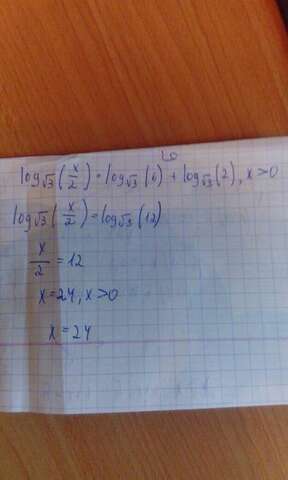 log√3(x/2) = log√3(6) + log√3(2), x>0
log√3(x/2) = log√3(12)
x/2 = 12
x=24, x>0
x=24